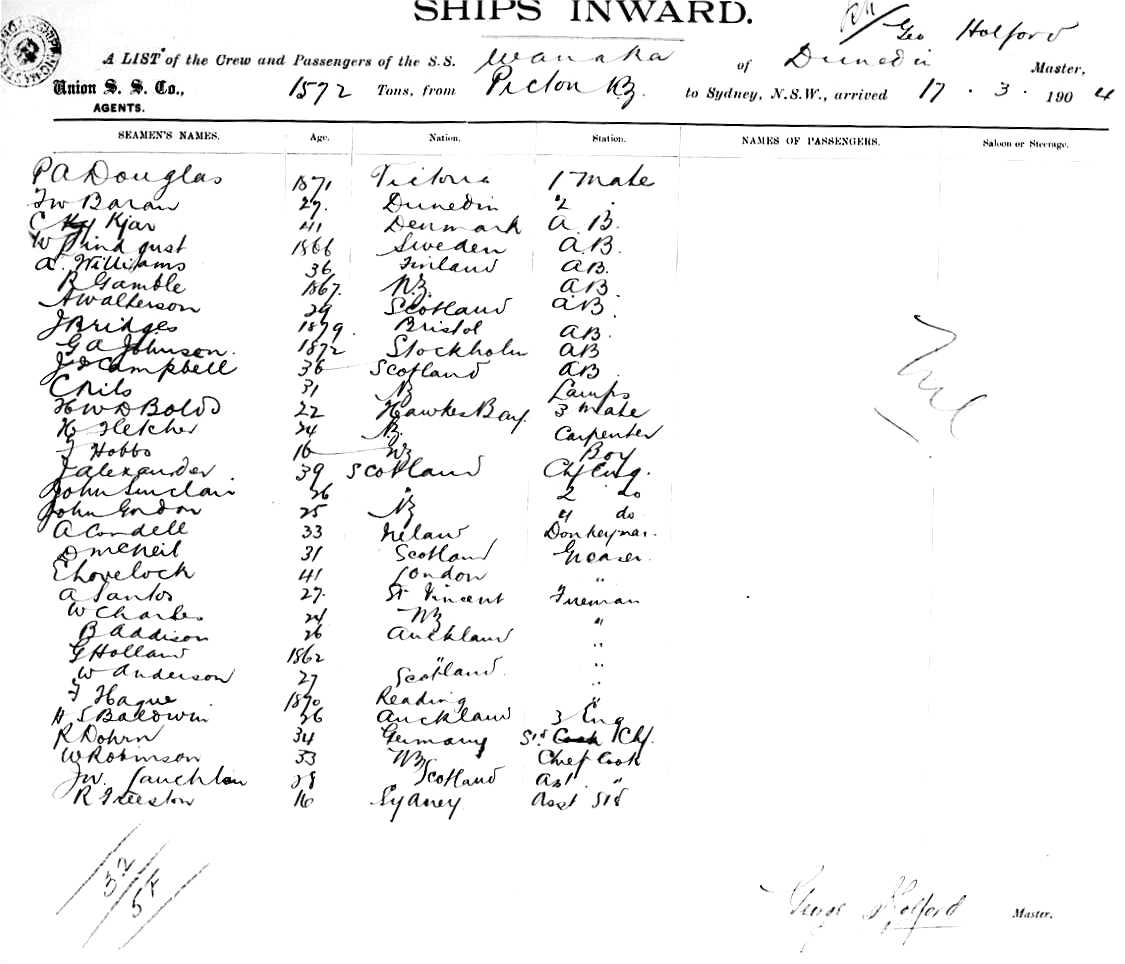 SHIPS INWARD.
Geo Holford
A LIST of the Crew and Passengers of the S.S. Wanaka of Dunedin Master,
Union S. S. Co., 1572 Tons, from Picton NZ. to Sydney, N.S.W., arrived 17 . 3 . 1904
AGENTS.
SEAMEN'S NAMES. Age. Nation. Station. NAMES OF PASSENGERS. Saloon or Steerage.
P A Douglas 1871 Victoria 1 Mate
Baran 27. Dunedin 2 "
C Kjar 41 Denmark A.B.
W 1866 Sweden A.B.
A. Williams 36 Finland A.B.
R Gamble 1867. NZ. A.B.
A Walherson 29 Scotland A.B.
J Bridges 1879. Bristol A.B.
G A Johnson. 1872 Stockholm AB
Campbell 36 Scotland AB
C Nils 31 NZ Lamps
H W D Bolds 22 Hawkes Bay. 3 Mate
H Fletcher 24 NZ. Carpenter
J Hobbs 16 NZ Boy
J Alexander 39 Scotland Chf Eng.
John Sinclair 26 " 2 do
John Gordon 25 NZ 4 do
A Cordell 33 Ireland Donkeyman.
D McNeil 31 Scotland Greaser.
E Lovelock 41 London "
A Santos 27. St Vincent Fireman
W Charles 24 NZ "
B Addison 26 Auckland "
G Holland 1862 " "
W Anderson 27 Scotland. "
F Hague 1870 Reading "
H S Baldwin 26 Auckland 3 Eng
R Dohrn 34 Germany Std Cook Chf.
W Robinson 33 NZ Chief Cook
Jw. Lauchlan 28 Scotland Ast "
R Freeston 16 Sydney Asst Std
Nil
32
54
George Holford Master.